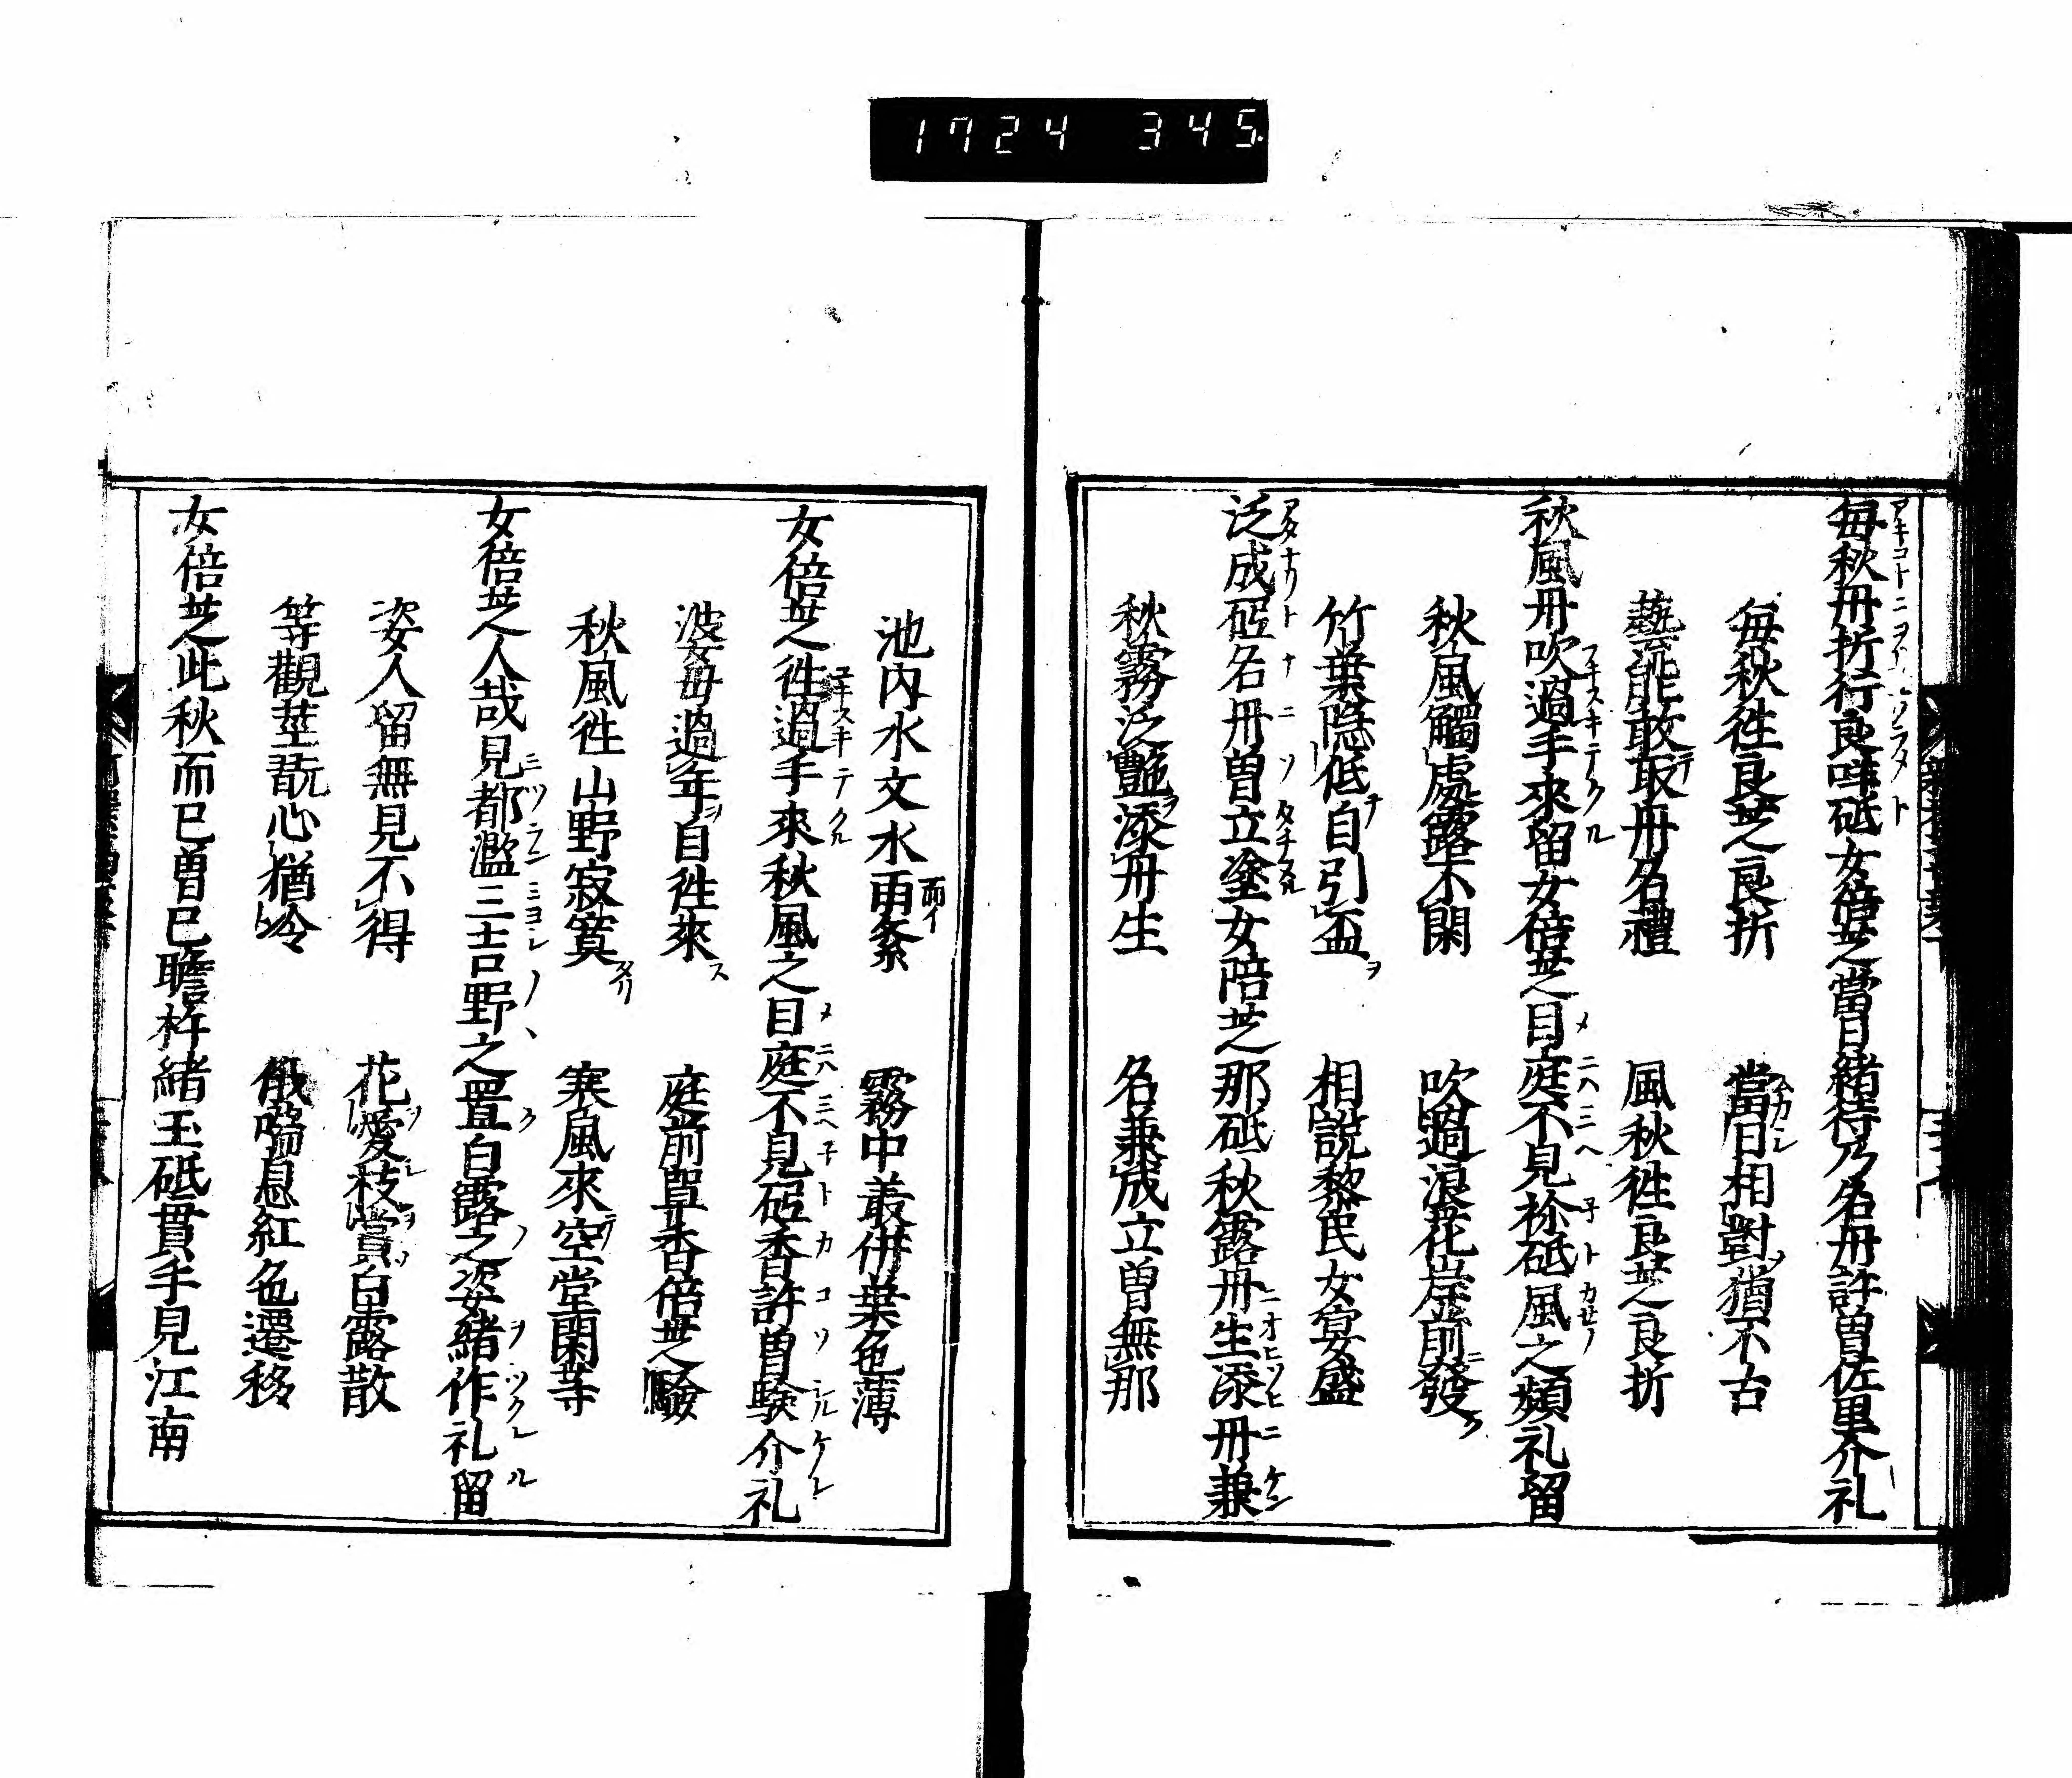 1724 345
毎秋丹折行良咩砥女倍芝當日緒待乃名丹許曽佐里介礼
毎秋徃良芝良折 當日相對猶不古
藝能敢取丹名禮 風秋徃良芝良折
秋風丹吹過手來留女倍芝目庭不見袮砥風之頻礼留
秋風觸處露不閑 吹過浪花岸前發
竹葉隠低自引盃 相説黎民女宴盛
泛成砥名丹曽立塗女陪芝那砥秋露丹生添丹兼
秋霧泛艶添丹生 名兼成立曽無那
池内水文水雨紊 霧中叢併葉色薄
女倍芝徃過手來秋風之目庭不見砥香許曽驗介礼
波婆毎過年自徃來 庭前單香倍芝驗
秋風徃山野寂寞 寒風來空堂閑等
女倍芝人哉見都濫三吉野之置白露之姿緒作礼留
姿人留無見不得 花愛枝賞白露散
等觀莖翫心猶冷 俄喘息紅色遷移
女倍芝此秋而已曽已瞻杵緒玉砥貫手見江南